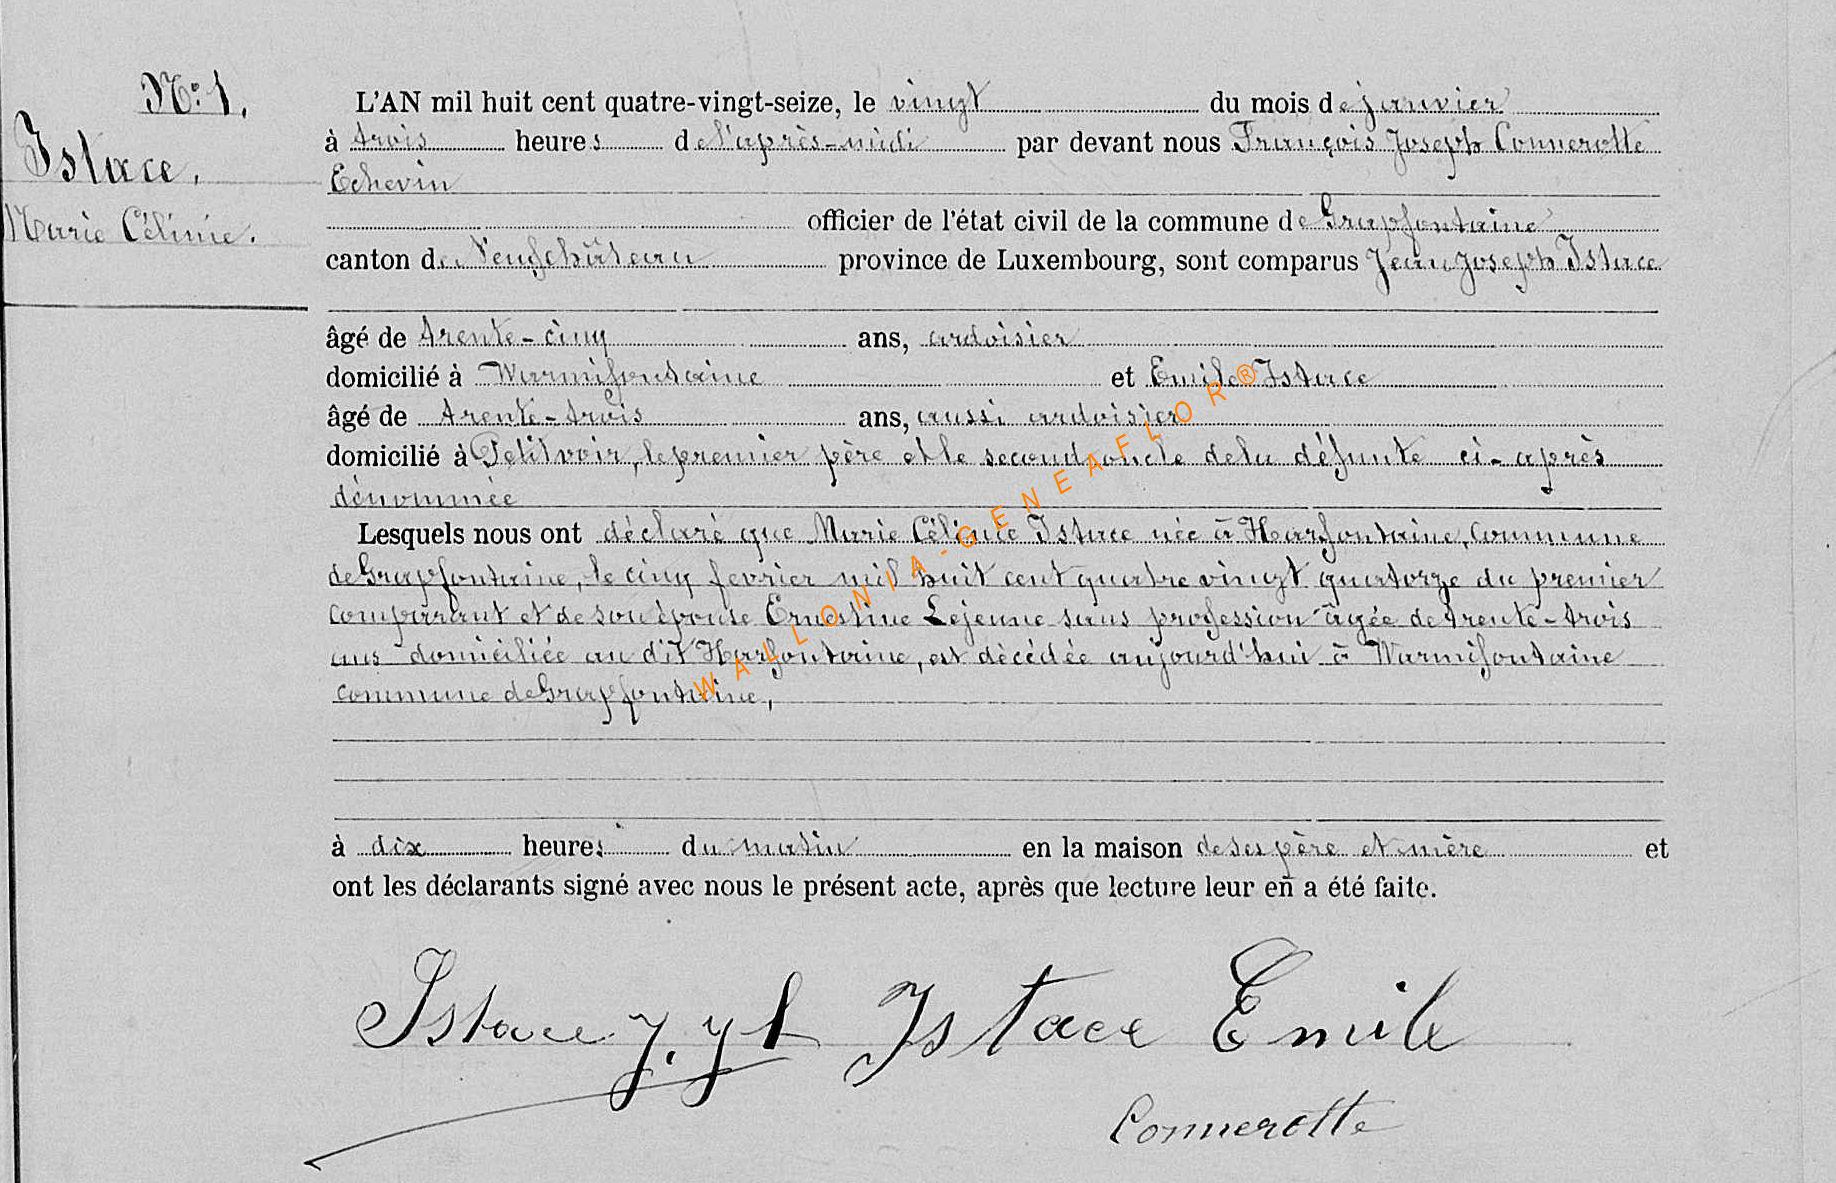 N° 1.
Istace,
Marie Céline.
L'AN mil huit cent quatre-vingt-seize, le vingt du mois de janvier
à trois heures de l'après-midi par devant nous François Joseph Connerotte
Echevin
officier de l'état civil de la commune de Grapfontaine
canton de Neufchâteau province de Luxembourg, sont comparus Jean Joseph Istace
âgé de trente-cinq ans, ardoisier
domicilié à Warmifontaine et Emile Istace
âgé de trente-trois ans, aussi ardoisier
domicilié à Petitvoir, le premier père et le second oncle de la défunte ci-après
dénommée
Lesquels nous ont déclaré que Marie Céline Istace née à Harfontaine, commune
de Grapfontaine, le cinq fevrier mil huit cent quatre vingt quatorze du premier
comparant et de son épouse Ernestine Lejeune sans profession âgée de trente-trois
ans domiciliée au dit Harfontaine, est décédée aujourd'hui à Warmifontaine
commune de Grapfontaine,
à dix heures du matin en la maison de ses père et mère et
ont les déclarants signé avec nous le présent acte, après que lecture leur en a été faite.
Istace J. J h Istace Emile
Connerotte
WALLONIA-GENEAFLOR®